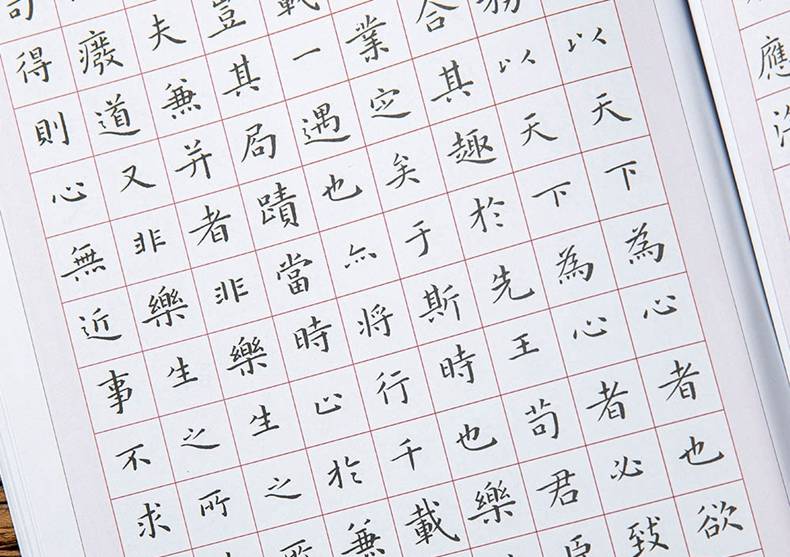 應
以天下為心者也欲
務以天下為心者必致
合其趣於先王苟君臣
業定矣于斯時也樂
載一遇也亦將行千載
豈其局蹟當時止於兼
夫兼并者非樂生之所
廢道又非樂生之所
苟得則心無近事不求